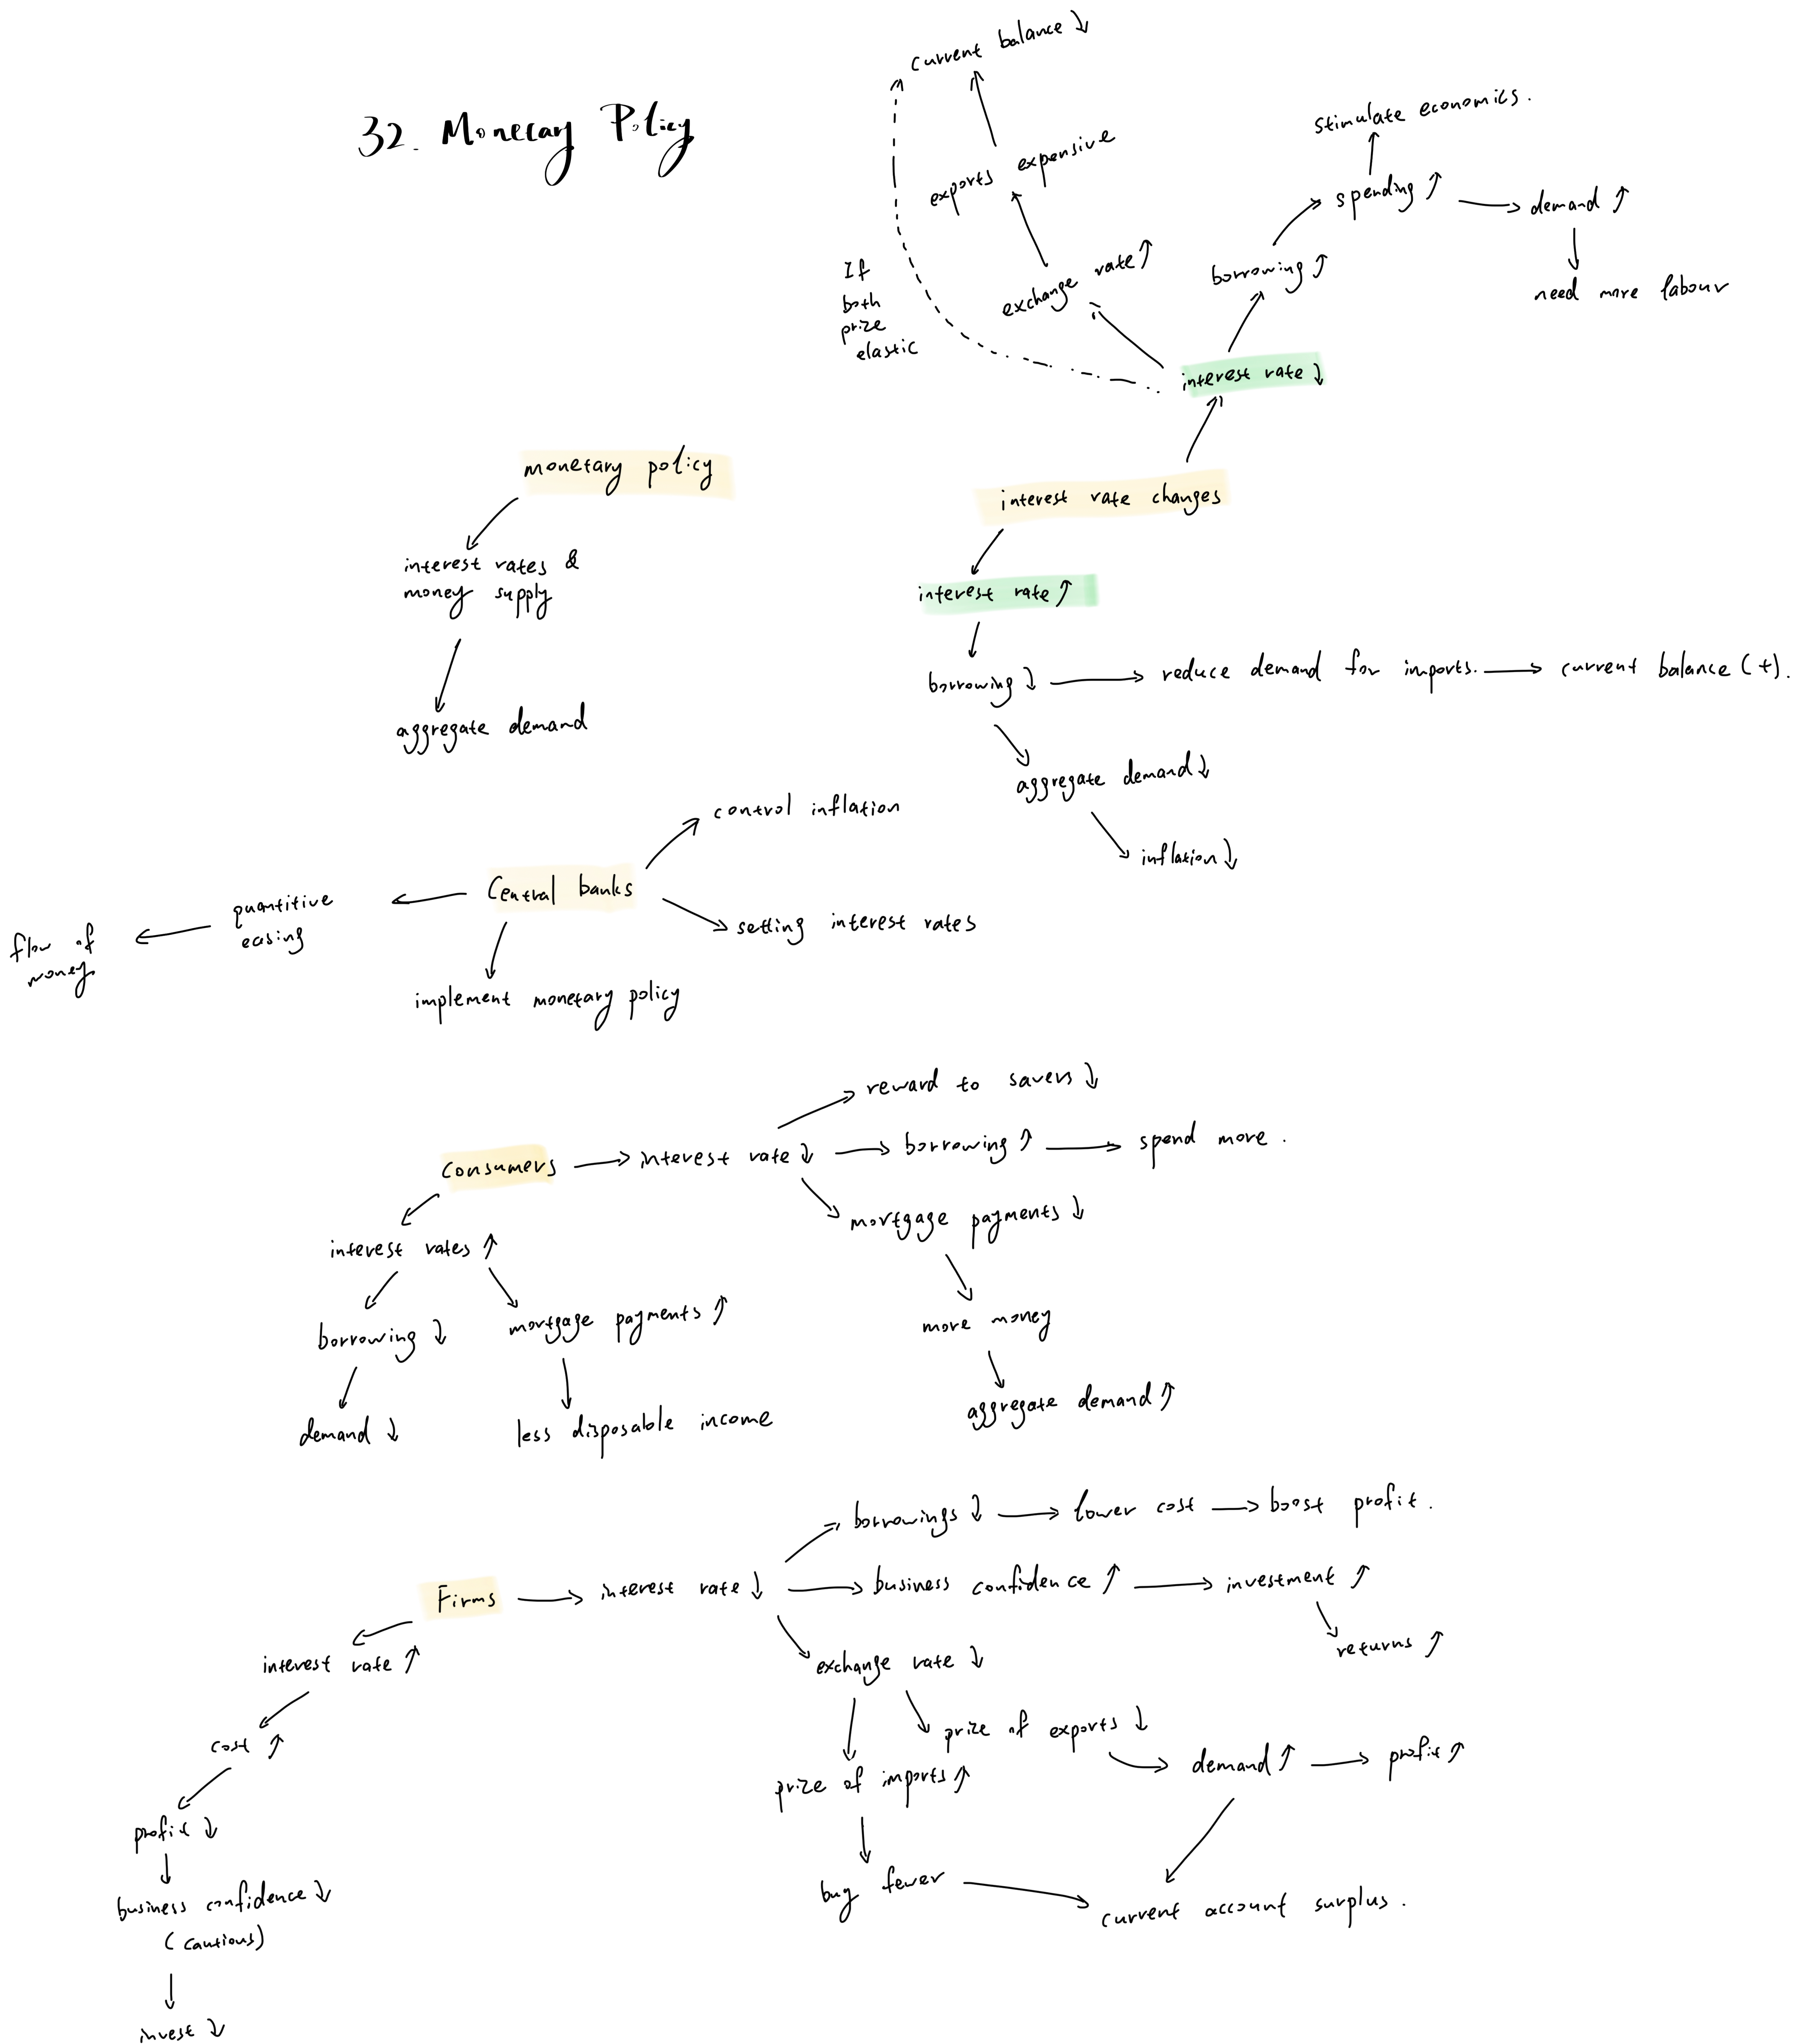 32. Monetary Policy
current balance ↓
exports expensive
exchange rate ↑
If
both
prize
elastic
stimulate economics.
spending ↑
demand ↑
need more labour
borrowing ↑
interest rate ↓
interest rate changes
interest rate ↑
borrowing ↓
reduce demand for imports.
current balance (+).
aggregate demand ↓
inflation ↓
monetary policy
interest rates &
money supply
aggregate demand
Central banks
control inflation
setting interest rates
implement monetary policy
quantitive
easing
flow of
money
Consumers
interest rate ↓
reward to savers ↓
borrowing ↑
spend more.
mortgage payments ↓
more money
aggregate demand ↑
interest rates ↑
borrowing ↓
demand ↓
mortgage payments ↑
less disposable income
Firms
interest rate ↓
borrowings ↓
lower cost
boost profit.
business confidence ↑
investment ↑
returns ↑
exchange rate ↓
prize of exports ↓
demand ↑
profit ↑
prize of imports ↑
buy fewer
current account surplus.
interest rate ↑
cost ↑
profit ↓
business confidence ↓
(cautious)
invest ↓